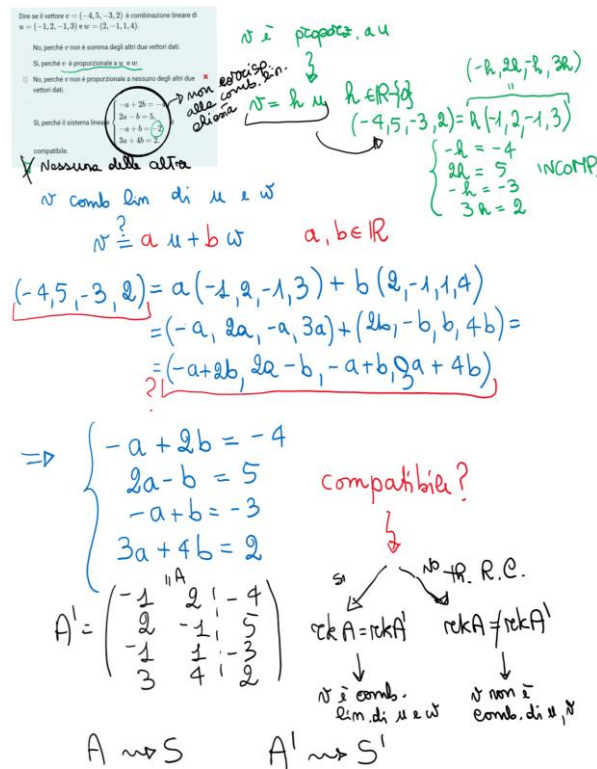 Dire se il vettore v = (−4, 5, −3, 2) è combinazione lineare di
u = (−1, 2, −1, 3) e w = (2, −1, 1, 4).
No, perché v non è somma degli altri due vettori dati.
Si, perché v è proporzionale a u, e w.
No, perché v non è proporzionale a nessuno degli altri due
vettori dati.
Si, perché il sistema lineare
−a + 2b = −4
2a − b = 5,
−a + b = −2
3a + 4b = 2.
compatibile.
Nessuna delle altre
non corrisp.
alla comb. lin.
chiesta
v è proporz. a u
v = h u, h ∈ ℝ-{0}
(-h, 2h, -h, 3h)
=
(-4, 5, -3, 2) = h(-1, 2, -1, 3)
-h = -4
2h = 5
-h = -3
3h = 2
INCOMP.
v comb lin di u e w
v =? a u + b w a, b ∈ ℝ
(-4, 5, -3, 2) = a(-1, 2, -1, 3) + b(2, -1, 1, 4)
= (-a, 2a, -a, 3a) + (2b, -b, b, 4b) =
= (-a+2b, 2a-b, -a+b, 3a+4b)
?
⇒ -a + 2b = -4
2a - b = 5
-a + b = -3
3a + 4b = 2
compatibile?
si
no
th. R.C.
rkA = rkA'
rkA ≠ rkA'
v è comb.
lin. di u e w
v non è
comb. di u, v
" A
A' = -1 2 -4
2 -1 5
-1 1 -3
3 4 2
A ⇝ S A' ⇝ S'